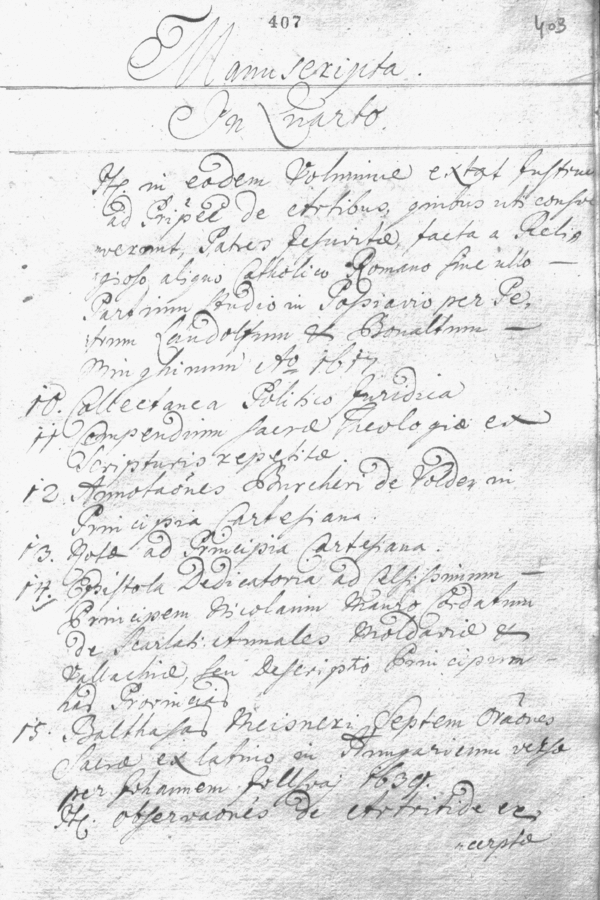 407
403
Manuscripta.
In Quarto.
It. in eodem Volumine extat Instruc
ad Pripēe de Artibus, quibus uti consve
verunt, Patres Jesuvitæ, facta a Reli,
gioso aliquo Catholico Romano sine ullo —
Partium studio in Possiavio per Pe,
trum Landolfum & Bonaltum —
Minghinum Aº 1617
10. Collectanea Politico Juridica
11 Compendium sacræ Theologiæ ex
Scripturis repetitæ.
12. Annotaōnes Burcheri de Volder in
Principia Cartesiana.
13. Notæ ad Principia Cartesiana.
14. Epistola Dedicatoria ad Celsissimum —
Principem Nicolaum Mauro Cordatum
de Scarlati Annales Moldaviæ &
Vallachiæ, seu Descriptio Principum
has Provincias
15. Balthasar Meisneri Septem Oraōnes
Sacræ ex latino in Hungaricum versæ
per Johannem 1639.
It. observaōnes de Artritide ex,
cerptæ